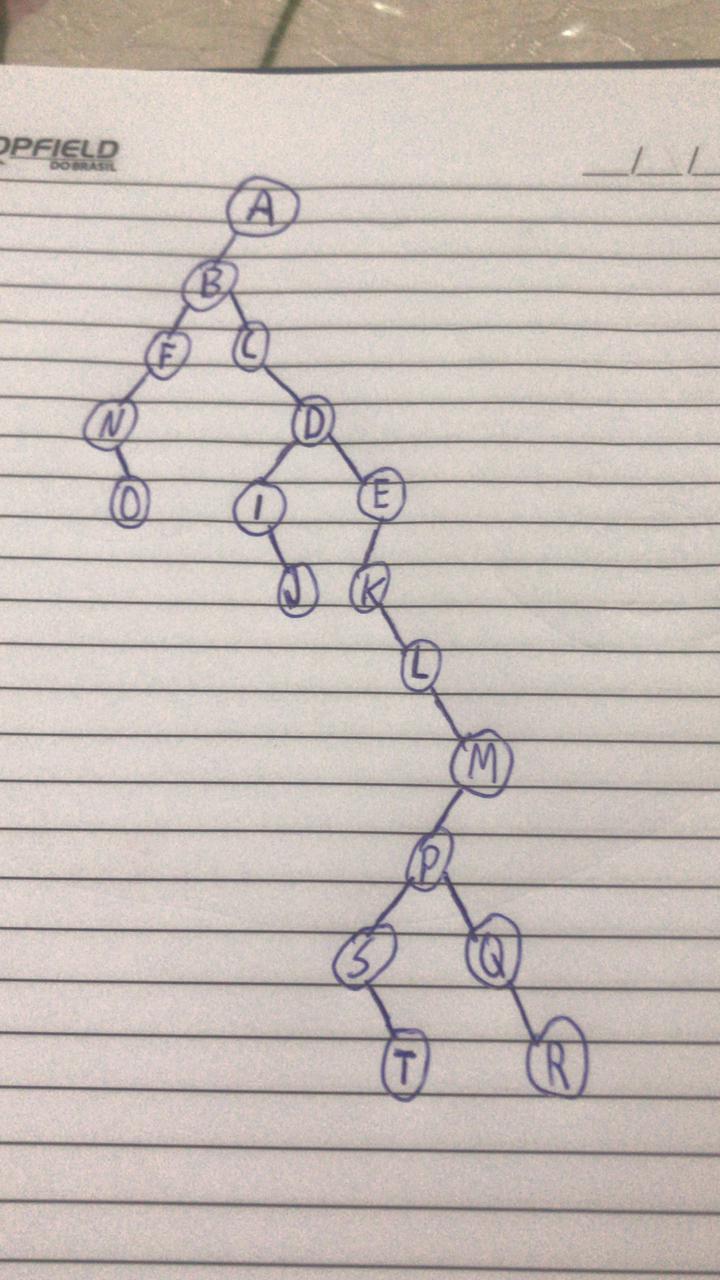 OPFIELD
DO BRASIL
__/__/__
A
B
F C
N D
O I E
J K
L
M
P
S Q
T R